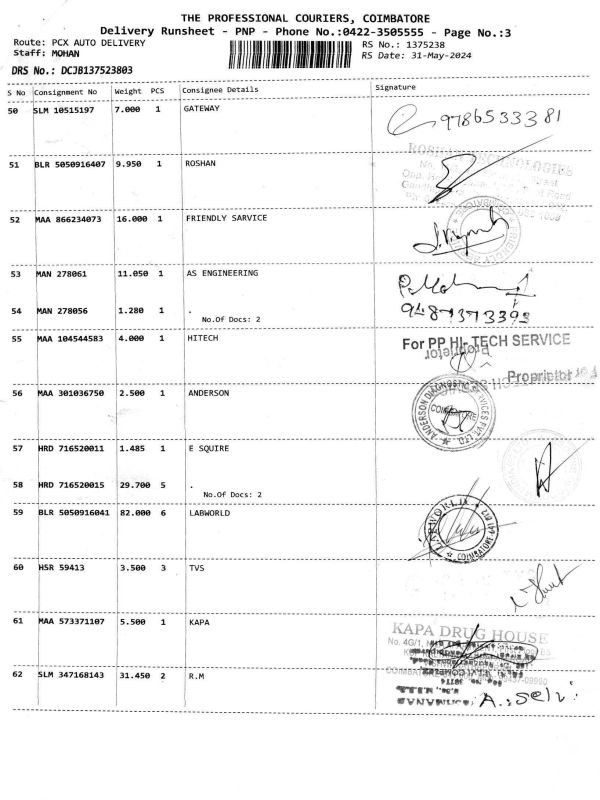 THE PROFESSIONAL COURIERS, COIMBATORE
Delivery Runsheet - PNP - Phone No.:0422-3505555 - Page No.:3
Route: PCX AUTO DELIVERY
RS No.: 1375238
Staff: MOHAN
RS Date: 31-May-2024
DRS No.: DCJB137523803
S No Consignment No Weight PCS Consignee Details Signature
50 SLM 10515197 7.000 1 GATEWAY
9786533381
51 BLR 5050916407 9.950 1 ROSHAN
ROSHAN TECHNOLOGIES
52 MAA 866234073 16.000 1 FRIENDLY SARVICE
53 MAN 278061 11.050 1 AS ENGINEERING
54 MAN 278056 1.280 1 .
No.Of Docs: 2
9487373393
55 MAA 104544583 4.000 1 HITECH
For PP HI-TECH SERVICE
Proprietor
56 MAA 301036750 2.500 1 ANDERSON
ANDERSON DIAGNOSTIC SERVICES PVT LTD.
COIMBATORE
57 HRD 716520011 1.485 1 E SQUIRE
58 HRD 716520015 29.700 5 .
No.Of Docs: 2
59 BLR 5050916041 82.000 6 LABWORLD
COIMBATORE
60 HSR 59413 3.500 3 TVS
61 MAA 573371107 5.500 1 KAPA
KAPA DRUG HOUSE
No. 4G/1,
62 SLM 347168143 31.450 2 R.M
A. Selvi